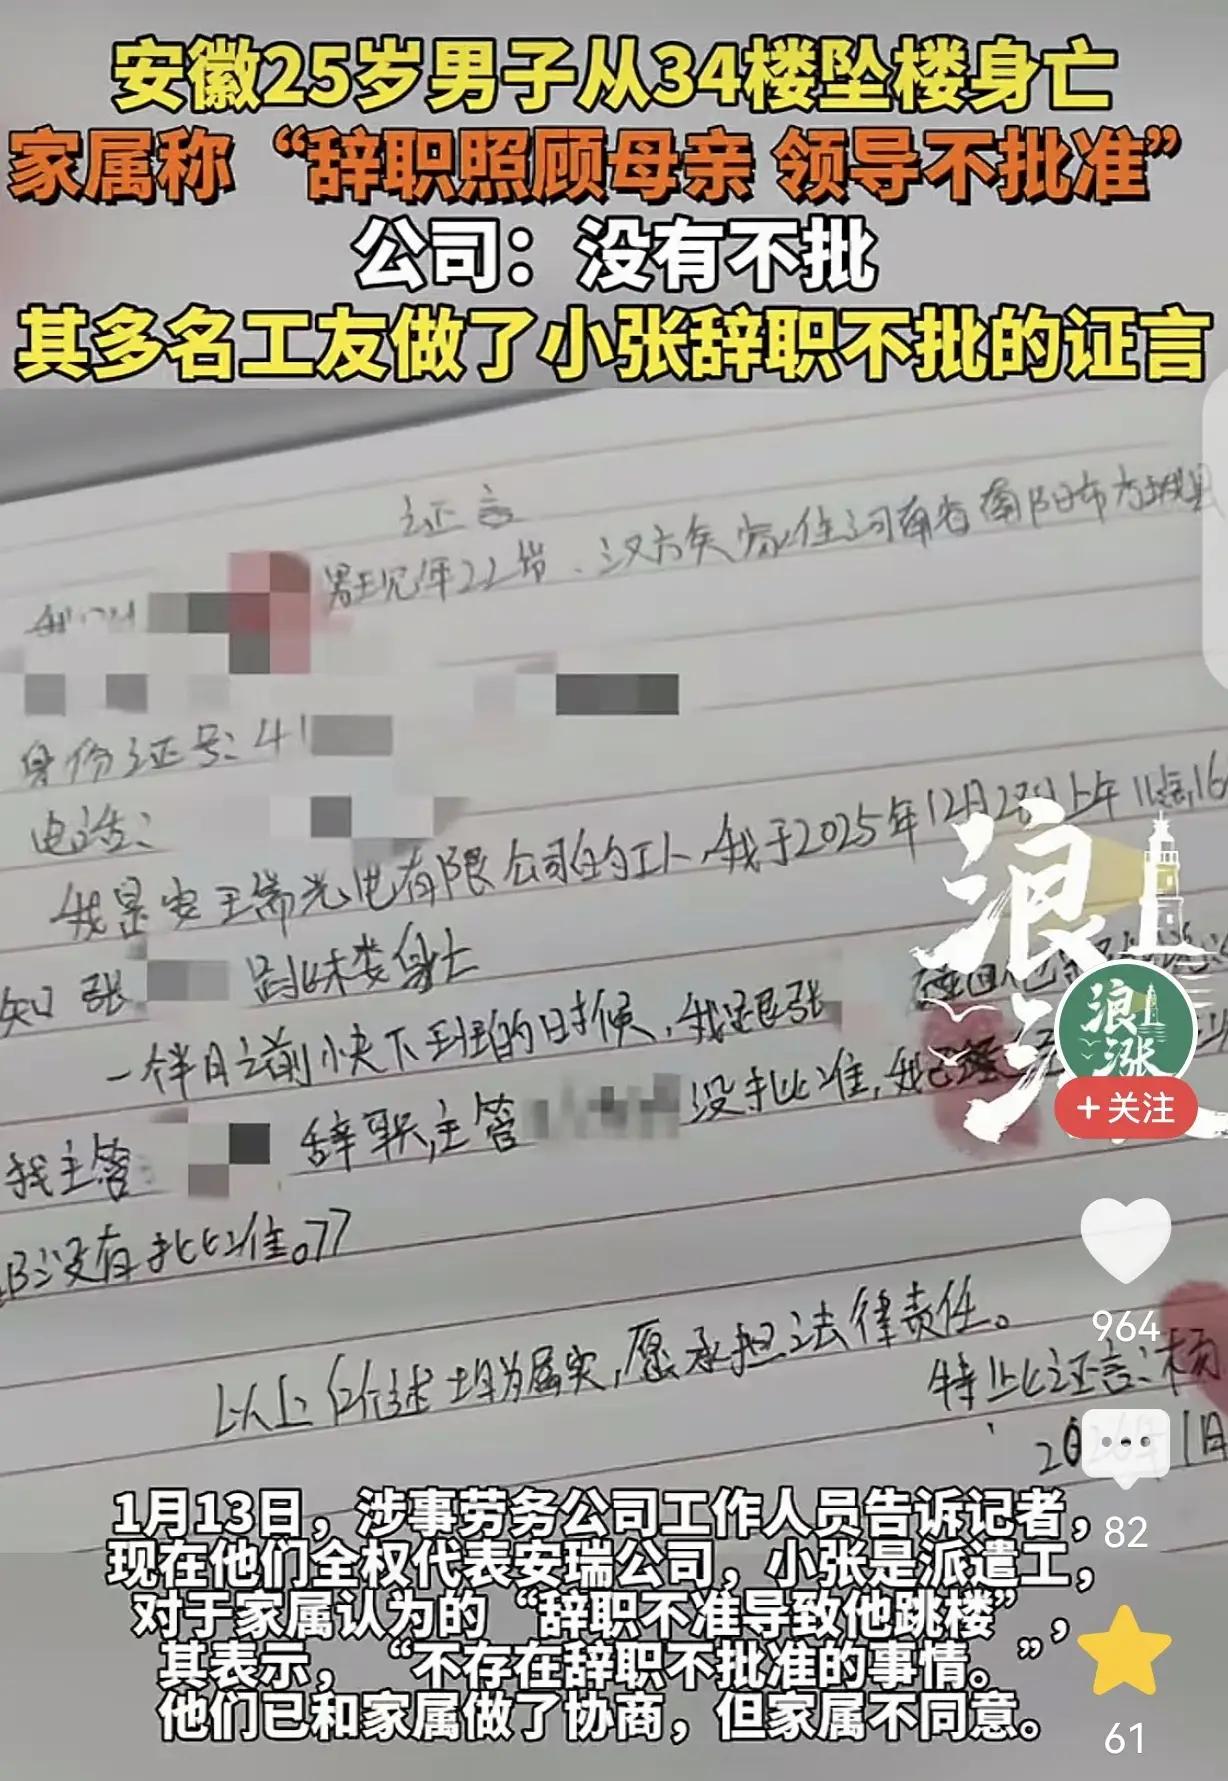 安徽25岁男子从34楼坠楼身亡
家属称“辞职照顾母亲 领导不批准”
公司：没有不批
其多名工友做了小张辞职不批的证言
证言
男 现年22岁、汉族 家住河南省南阳市方城县
身份证号：41
电话：
我是安 瑞光电有限公司的工人，我于2025年12月2 上午11点16
知 张 跳楼身亡
一个半月之前快下班的时候，我跟张
我主管 辞职，主管 没批准，我已经
没有批准。77
以上所述均为属实，愿承担法律责任。
特此证言：杨
1月
浪
浪
涨
+关注
964
82
61
1月13日，涉事劳务公司工作人员告诉记者，
现在他们全权代表安瑞公司，小张是派遣工，
对于家属认为的“辞职不准导致他跳楼”，
其表示，“不存在辞职不批准的事情。”
他们已和家属做了协商，但家属不同意。